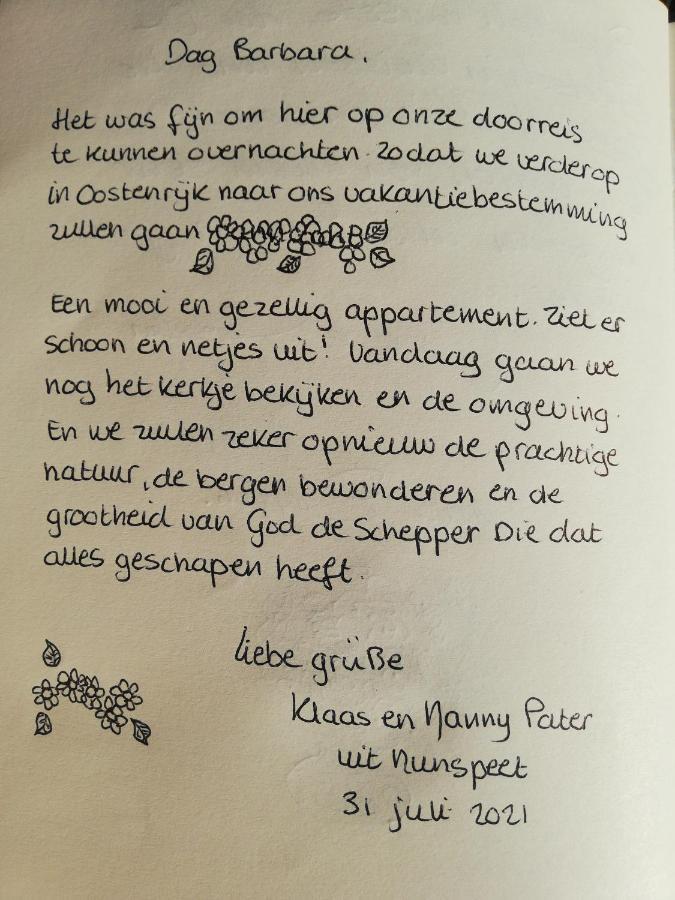 Dag Barbara.
Het was fijn om hier op onze doorreis
te kunnen overnachten. Zodat we verderop
in Oostenrijk naar ons vakantiebestemming
zullen gaan
Een mooi en gezellig appartement. Ziet er
schoon en netjes uit! Vandaag gaan we
nog het kerkje bekijken en de omgeving.
En we zullen zeker opnieuw de prachtige
natuur, de bergen bewonderen en de
grootheid van God de Schepper Die dat
alles geschapen heeft.
liebe grüße
Klaas en Nanny Pater
uit Nunspeet
31 juli 2021